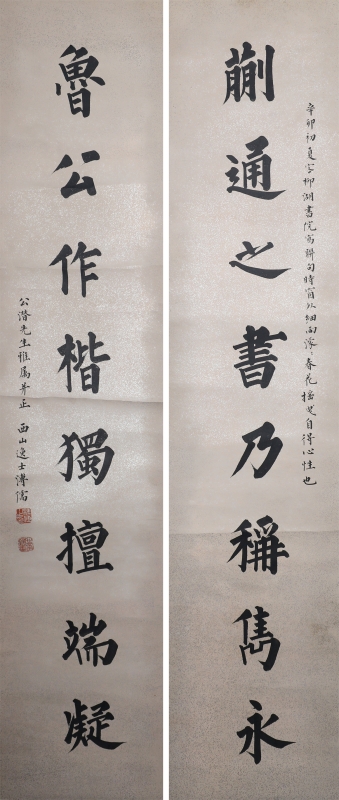 蒯通之書乃稱雋永
辛卯初夏字柳湖書院寫聯句時窗外細雨濛濛春花搖曳自得心性也
魯公作楷獨擅端凝
公潛先生雅屬并正 西山逸士溥儒